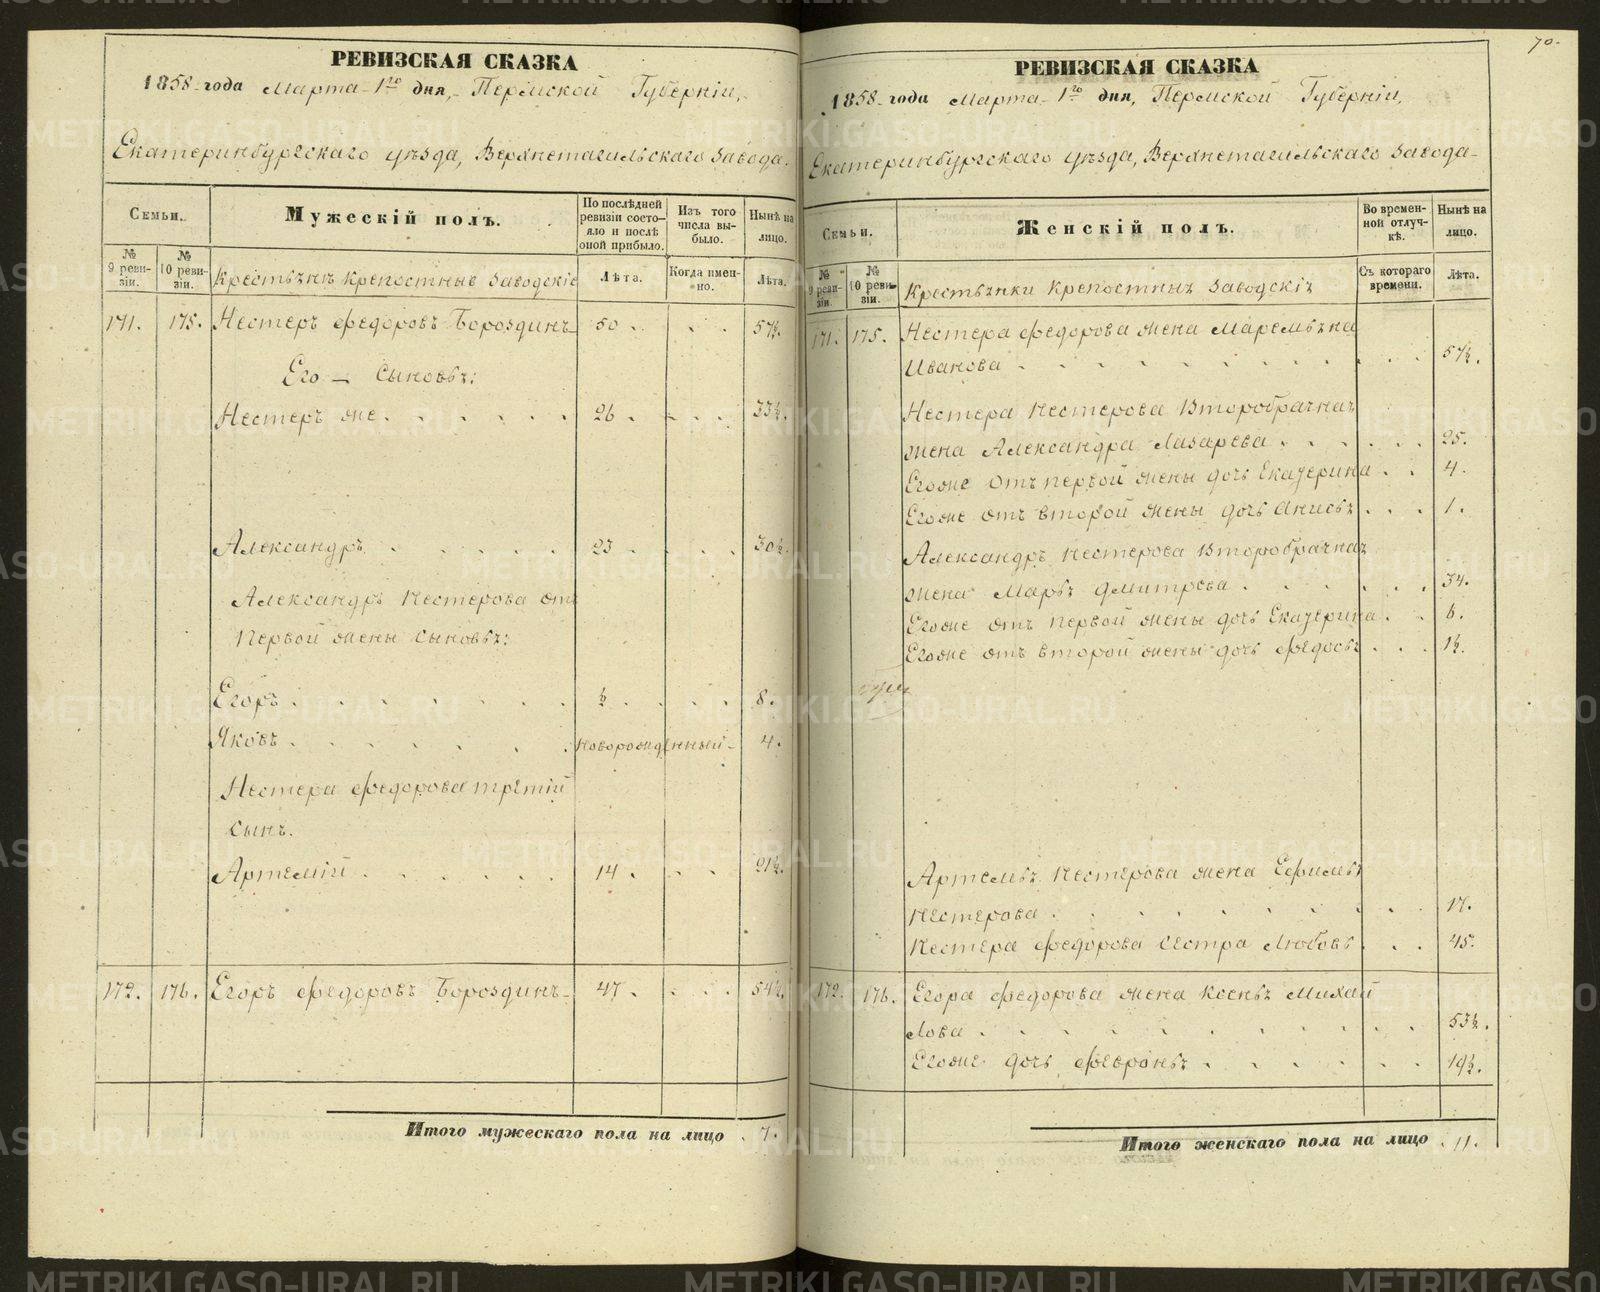 РЕВИЗСКАЯ СКАЗКА
1858 года Марта 1го дня, Пермской Губерніи,
Екатеринбургскаго уѣзда, Верхнетагильскаго завода.
Семьи.
Мужескій полъ.
По послѣдней ревизіи состояло и послѣ оной прибыло.
Изъ того числа выбыло.
Нынѣ на лицо.
№ 9 ревизіи.
№ 10 ревизіи.
Крестьяне крепостные заводскіе
Лѣта.
Когда именно.
Лѣта.
171. 175. Нестеръ Федоровъ Бороздинъ 50. 57½.
Его – сыновья:
Нестеръ же 26. 33½.
Александръ 23. 30½.
Александра Нестерова отъ
первой жены сыновья:
Егоръ ½. 8.
Яковъ новорожденный 4.
Нестера Федорова третій
сынъ.
Артемій 14. 21½.
172. 176. Егоръ Федоровъ Бороздинъ 47. 54½.
Итого мужескаго пола на лицо 7.
70.
РЕВИЗСКАЯ СКАЗКА
1858 года Марта 1го дня, Пермской Губерніи,
Екатеринбургскаго уѣзда, Верхнетагильскаго завода
Семьи.
Женскій полъ.
Во временной отлучкѣ.
Нынѣ на лицо.
№ 9 ревизіи.
№ 10 ревизіи.
Крестьянки крепостныя заводскія
Съ котораго времени.
Лѣта.
171. 175. Нестера Федорова жена Маремьяна
Иванова 57½.
Нестера Нестерова второбрачная
жена Александра Лазарева 25.
Егоже отъ первой жены дочь Екатерина 4.
Егоже отъ второй жены дочь Анисья 1.
Александра Нестерова второбрачная
жена Марья Дмитрева 34.
Егоже отъ первой жены дочь Екатерина 6.
Егоже отъ второй жены дочь Федосья 1½.
Артемья Нестерова жена Ефимья
Нестерова 17.
Нестера Федорова сестра Любовь 45.
172. 176. Егора Федорова жена Ксенья Михай
лова 53½.
Егоже дочь Февронья 19½.
Итого женскаго пола на лицо 11.
METRIKI.GASO-URAL.RU